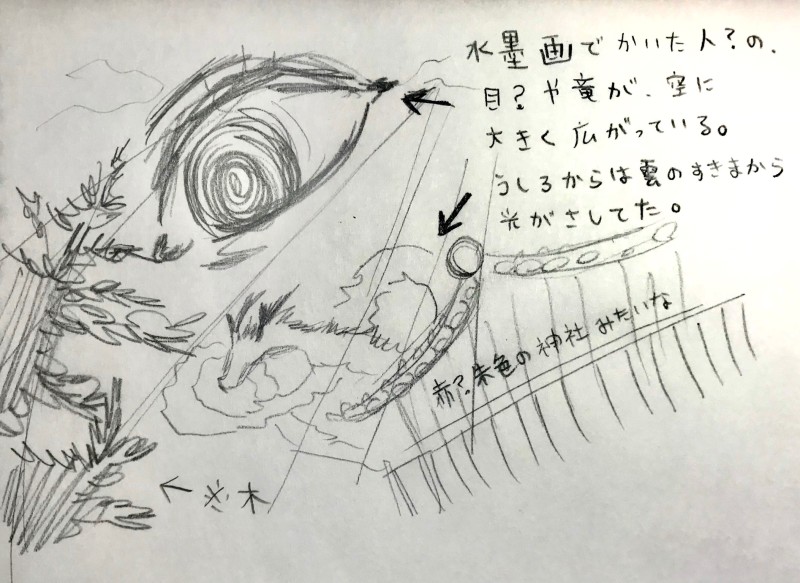 水墨画でかいた人?の、
目?や竜が、空に
大きく広がっている。
うしろからは雲のすきまから
光がさしてた。
赤?朱色の神社みたいな
← ※木